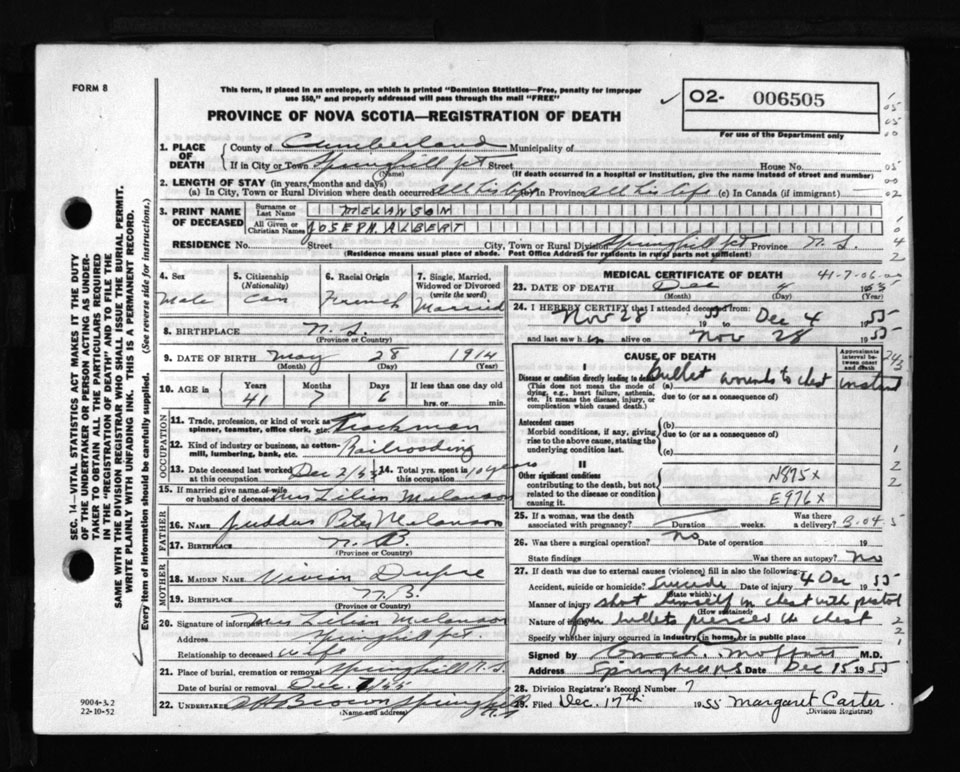 FORM 8
This form, if placed in an envelope, on which is printed "Dominion Statistics—Free, penalty for improper
use $50," and properly addressed will pass through the mail "FREE"
✓ O2- 006505
For use of the Department only
PROVINCE OF NOVA SCOTIA—REGISTRATION OF DEATH
SEC. 14—VITAL STATISTICS ACT MAKES IT THE DUTY
OF THE UNDERTAKER OR PERSON ACTING AS UNDER-
TAKER TO OBTAIN ALL THE PARTICULARS REQUIRED
IN THE "REGISTRATION OF DEATH" AND TO FILE THE
SAME WITH THE DIVISION REGISTRAR WHO SHALL ISSUE THE BURIAL PERMIT.
WRITE PLAINLY WITH UNFADING INK. THIS IS A PERMANENT RECORD.
Every item of information should be carefully supplied. (See reverse side for instructions.)
1. PLACE OF DEATH
County of Cumberland Municipality of
If in City or Town Springhill Jct Street House No.
(Name) (If death occurred in a hospital or institution, give the name instead of street and number)
2. LENGTH OF STAY (in years, months and days)
(a) In City, Town or Rural Division where death occurred all his life (b) In Province all his life (c) In Canada (if immigrant)
3. PRINT NAME OF DECEASED
Surname or Last Name MELANSON
All Given or Christian Names JOSEPH ALBERT
RESIDENCE No. Street City, Town or Rural Division Springhill Jct Province N.S.
(Residence means usual place of abode. Post Office Address for residents in rural parts not sufficient)
4. Sex Male
5. Citizenship (Nationality) Can
6. Racial Origin French
7. Single, Married, Widowed or Divorced (write the word) Married
8. BIRTHPLACE N.S.
(Province or Country)
9. DATE OF BIRTH May 28 1914
(Month) (Day) (Year)
10. AGE in Years 41 Months 7 Days 6 If less than one day old hrs. or min.
OCCUPATION
11. Trade, profession, or kind of work as spinner, teamster, office clerk, etc. Trackman
12. Kind of industry or business, as cotton-mill, lumbering, bank, etc. Railroading
13. Date deceased last worked at this occupation Dec 2/55 14. Total yrs. spent in this occupation 10 years
15. If married give name of wife or husband of deceased Mrs Lilian Melanson
FATHER
16. NAME Peter Melanson
17. BIRTHPLACE N.B.
(Province or Country)
MOTHER
18. MAIDEN NAME Vivian Dupre
19. BIRTHPLACE N.B.
(Province or Country)
20. Signature of informant Mrs Lilian Melanson
Address Springhill Jct.
Relationship to deceased wife
21. Place of burial, cremation or removal Springhill N.S.
Date of burial or removal Dec. 7/55
22. UNDERTAKER Brown Springhill N.S.
(Name and address)
9004-3.2
22-10-52
MEDICAL CERTIFICATE OF DEATH 41-7-06
23. DATE OF DEATH Dec 4 1955
(Month) (Day) (Year)
24. I HEREBY CERTIFY that I attended deceased from
Nov 28 1955 to Dec 4 1955
and last saw him alive on Nov 28 1955
CAUSE OF DEATH
Approximate interval between onset and death
I
Disease or condition directly leading to death (a) Bullet wounds to chest instant
(This does not mean the mode of dying, e.g., heart failure, asthenia, etc. It means the disease, injury, or complication which caused death.)
due to (or as a consequence of)
Antecedent causes
Morbid conditions, if any, giving rise to the above cause, stating the underlying condition last.
(b)
due to (or as a consequence of)
(c)
II
Other significant conditions
contributing to the death, but not related to the disease or condition causing it
N875x
E976x
25. If a woman, was the death associated with pregnancy? Duration weeks. Was there a delivery?
26. Was there a surgical operation? No Date of operation 19
State findings Was there an autopsy? No
27. If death was due to external causes (violence) fill in also the following:
Accident, suicide or homicide? Suicide Date of injury 4 Dec 1955
(State which)
Manner of injury shot himself in chest with pistol
(How sustained)
Nature of injury four bullets pierced the chest
Specify whether injury occurred in industry, in home, or in public place
Signed by Moffatt M.D.
Address Springhill NS Date Dec 15 1955
28. Division Registrar's Record Number 7
29. Filed Dec. 17th 1955 Margaret Carter.
(Division Registrar)